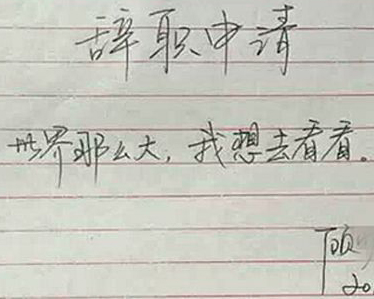 辞职申请
世界那么大，我想去看看。
顾
20